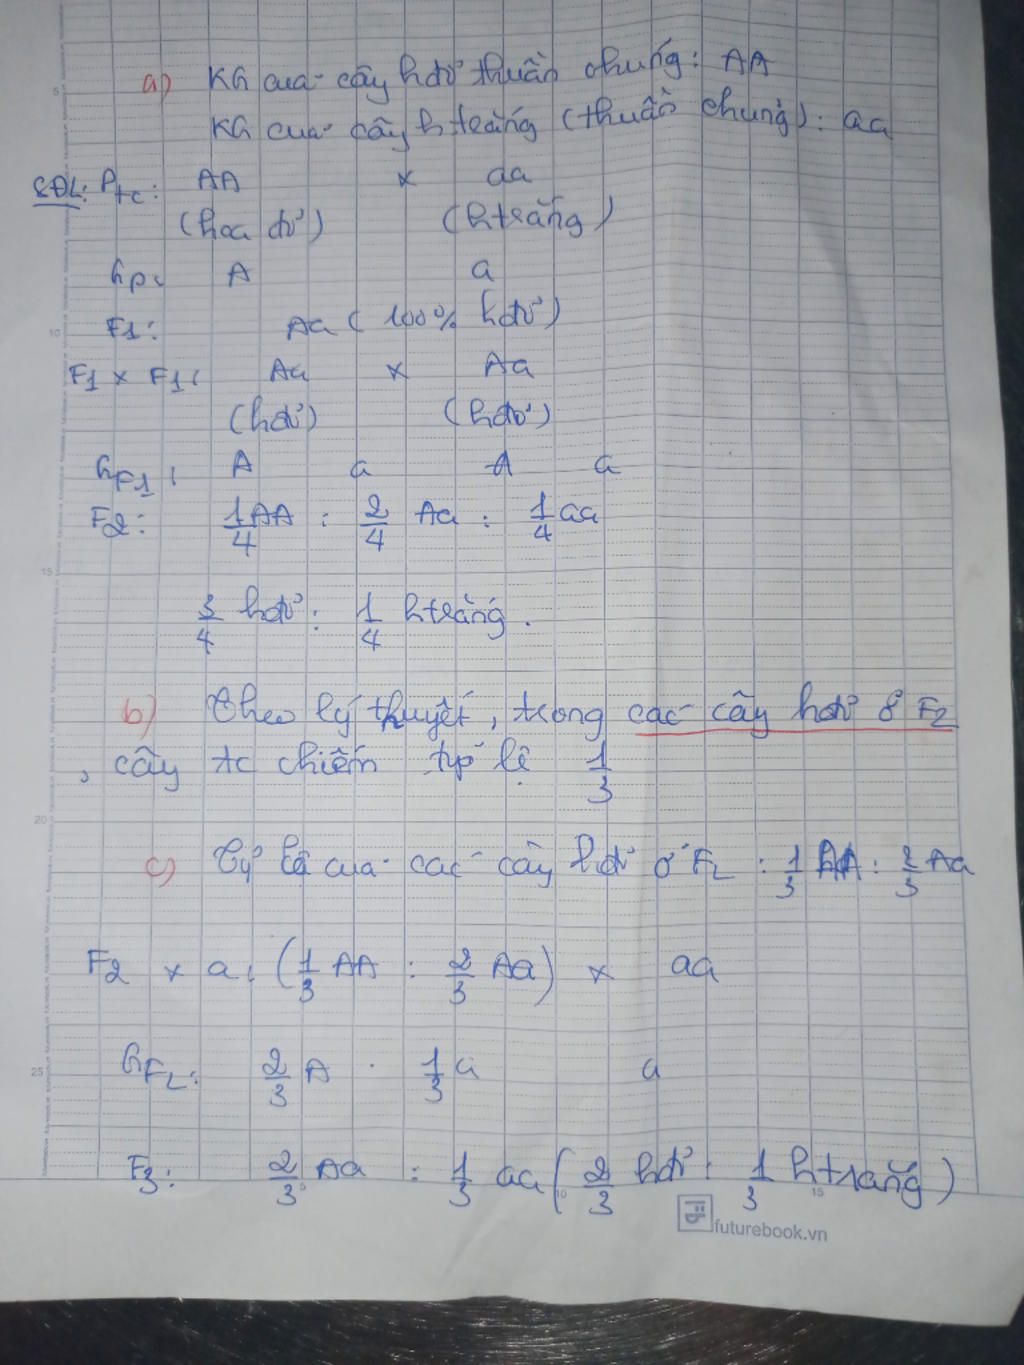 a) KG của cây hđỏ thuần chủng: AA
KG của cây htrắng (thuần chủng): aa
SĐL: Ptc: AA x aa
(hoa đỏ) (htrắng)
Gp: A a
F1: Aa (100% hđỏ)
F1 x F1: Aa x Aa
(hđỏ) (hđỏ)
GF1: A a A a
F2: 1/4 AA : 2/4 Aa : 1/4 aa
3/4 hđỏ : 1/4 htrắng.
b) Theo lý thuyết, trong các cây hđỏ ở F2
, cây tc chiếm tỷ lệ 1/3
c) Tỷ lệ của các cây hđỏ ở F2 : 1/3 AA : 2/3 Aa
F2 x a: (1/3 AA : 2/3 Aa) x aa
GF2: 2/3 A . 1/3 a a
F3: 2/3 Aa : 1/3 aa (2/3 hđỏ : 1/3 htrắng)
futurebook.vn
5
10
15
20
25
5
10
15